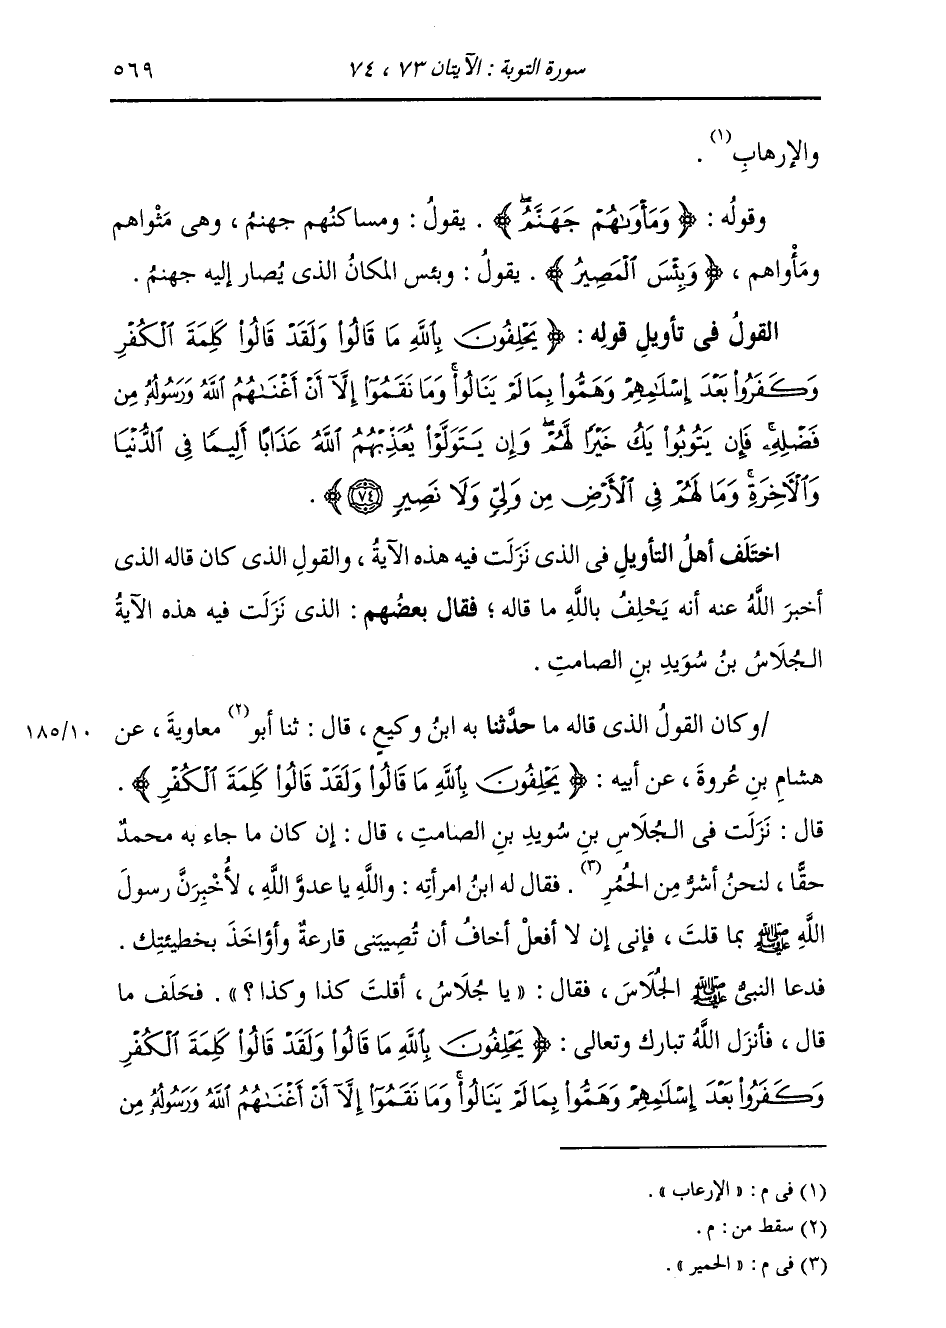 سورة التوبة : الآيتان ٧٣ ، ٧٤ ٥٦٩
والإرهابِ(١) .
وقولُه : ﴿ وَمَأْوَىٰهُمْ جَهَنَّمُ ﴾ . يقولُ : ومساكنُهم جهنمُ ، وهى مَثْواهم
ومَأْواهم ، ﴿ وَبِئْسَ ٱلْمَصِيرُ ﴾ . يقولُ : وبئس المكانُ الذى يُصار إليه جهنمُ .
القولُ فى تأويلِ قولِه : ﴿ يَحْلِفُونَ بِٱللَّهِ مَا قَالُوا۟ وَلَقَدْ قَالُوا۟ كَلِمَةَ ٱلْكُفْرِ
وَكَفَرُوا۟ بَعْدَ إِسْلَٰمِهِمْ وَهَمُّوا۟ بِمَا لَمْ يَنَالُوا۟ۚ وَمَا نَقَمُوٓا۟ إِلَّآ أَنْ أَغْنَىٰهُمُ ٱللَّهُ وَرَسُولُهُۥ مِن
فَضْلِهِۦۚ فَإِن يَتُوبُوا۟ يَكُ خَيْرًا لَّهُمْۖ وَإِن يَتَوَلَّوْا۟ يُعَذِّبْهُمُ ٱللَّهُ عَذَابًا أَلِيمًا فِى ٱلدُّنْيَا
وَٱلْأَخِرَةِۚ وَمَا لَهُمْ فِى ٱلْأَرْضِ مِن وَلِىٍّ وَلَا نَصِيرٍ ٧٤ ﴾ .
اختَلَف أهلُ التأويلِ فى الذى نَزَلَت فيه هذه الآيةُ ، والقولِ الذى كان قاله الذى
أخبرَ اللَّهُ عنه أنه يَحْلِفُ باللَّهِ ما قاله ؛ فقال بعضُهم : الذى نَزَلَت فيه هذه الآيةُ
الجُلَاسُ بنُ سُوَيدِ بنِ الصامتِ .
/وكان القولُ الذى قاله ما حدَّثنا به ابنُ وكيعٍ ، قال : ثنا أبو(٢) معاويةَ ، عن ١٨٥/١٠
هشامِ بنِ عُروةَ ، عن أبيه : ﴿ يَحْلِفُونَ بِٱللَّهِ مَا قَالُوا۟ وَلَقَدْ قَالُوا۟ كَلِمَةَ ٱلْكُفْرِ ﴾ .
قال : نَزَلَت فى الجُلَاسِ بنِ سُويدِ بنِ الصامتِ ، قال : إن كان ما جاء به محمدٌ
حقًّا ، لنحنُ أشرُّ مِن الحُمُرِ(٣) . فقال له ابنُ امرأتِه : واللَّهِ يا عدوَّ اللَّهِ ، لأُخْبِرَنَّ رسولَ
اللَّهِ ﷺ بما قلتَ ، فإنى إن لا أفعلْ أخافُ أن تُصِيبَنى قارعةٌ وأؤاخَذَ بخطيئتِك .
فدعا النبىُّ ﷺ الجُلَاسَ ، فقال : « يا جُلَاسُ ، أقلتَ كذا وكذا ؟ » . فحَلَف ما
قال ، فأنزَل اللَّهُ تبارك وتعالى : ﴿ يَحْلِفُونَ بِٱللَّهِ مَا قَالُوا۟ وَلَقَدْ قَالُوا۟ كَلِمَةَ ٱلْكُفْرِ
وَكَفَرُوا۟ بَعْدَ إِسْلَٰمِهِمْ وَهَمُّوا۟ بِمَا لَمْ يَنَالُوا۟ۚ وَمَا نَقَمُوٓا۟ إِلَّآ أَنْ أَغْنَىٰهُمُ ٱللَّهُ وَرَسُولُهُۥ مِن
(١) فى م : « الإرعاب » .
(٢) سقط من : م .
(٣) فى م : « الحمير » .